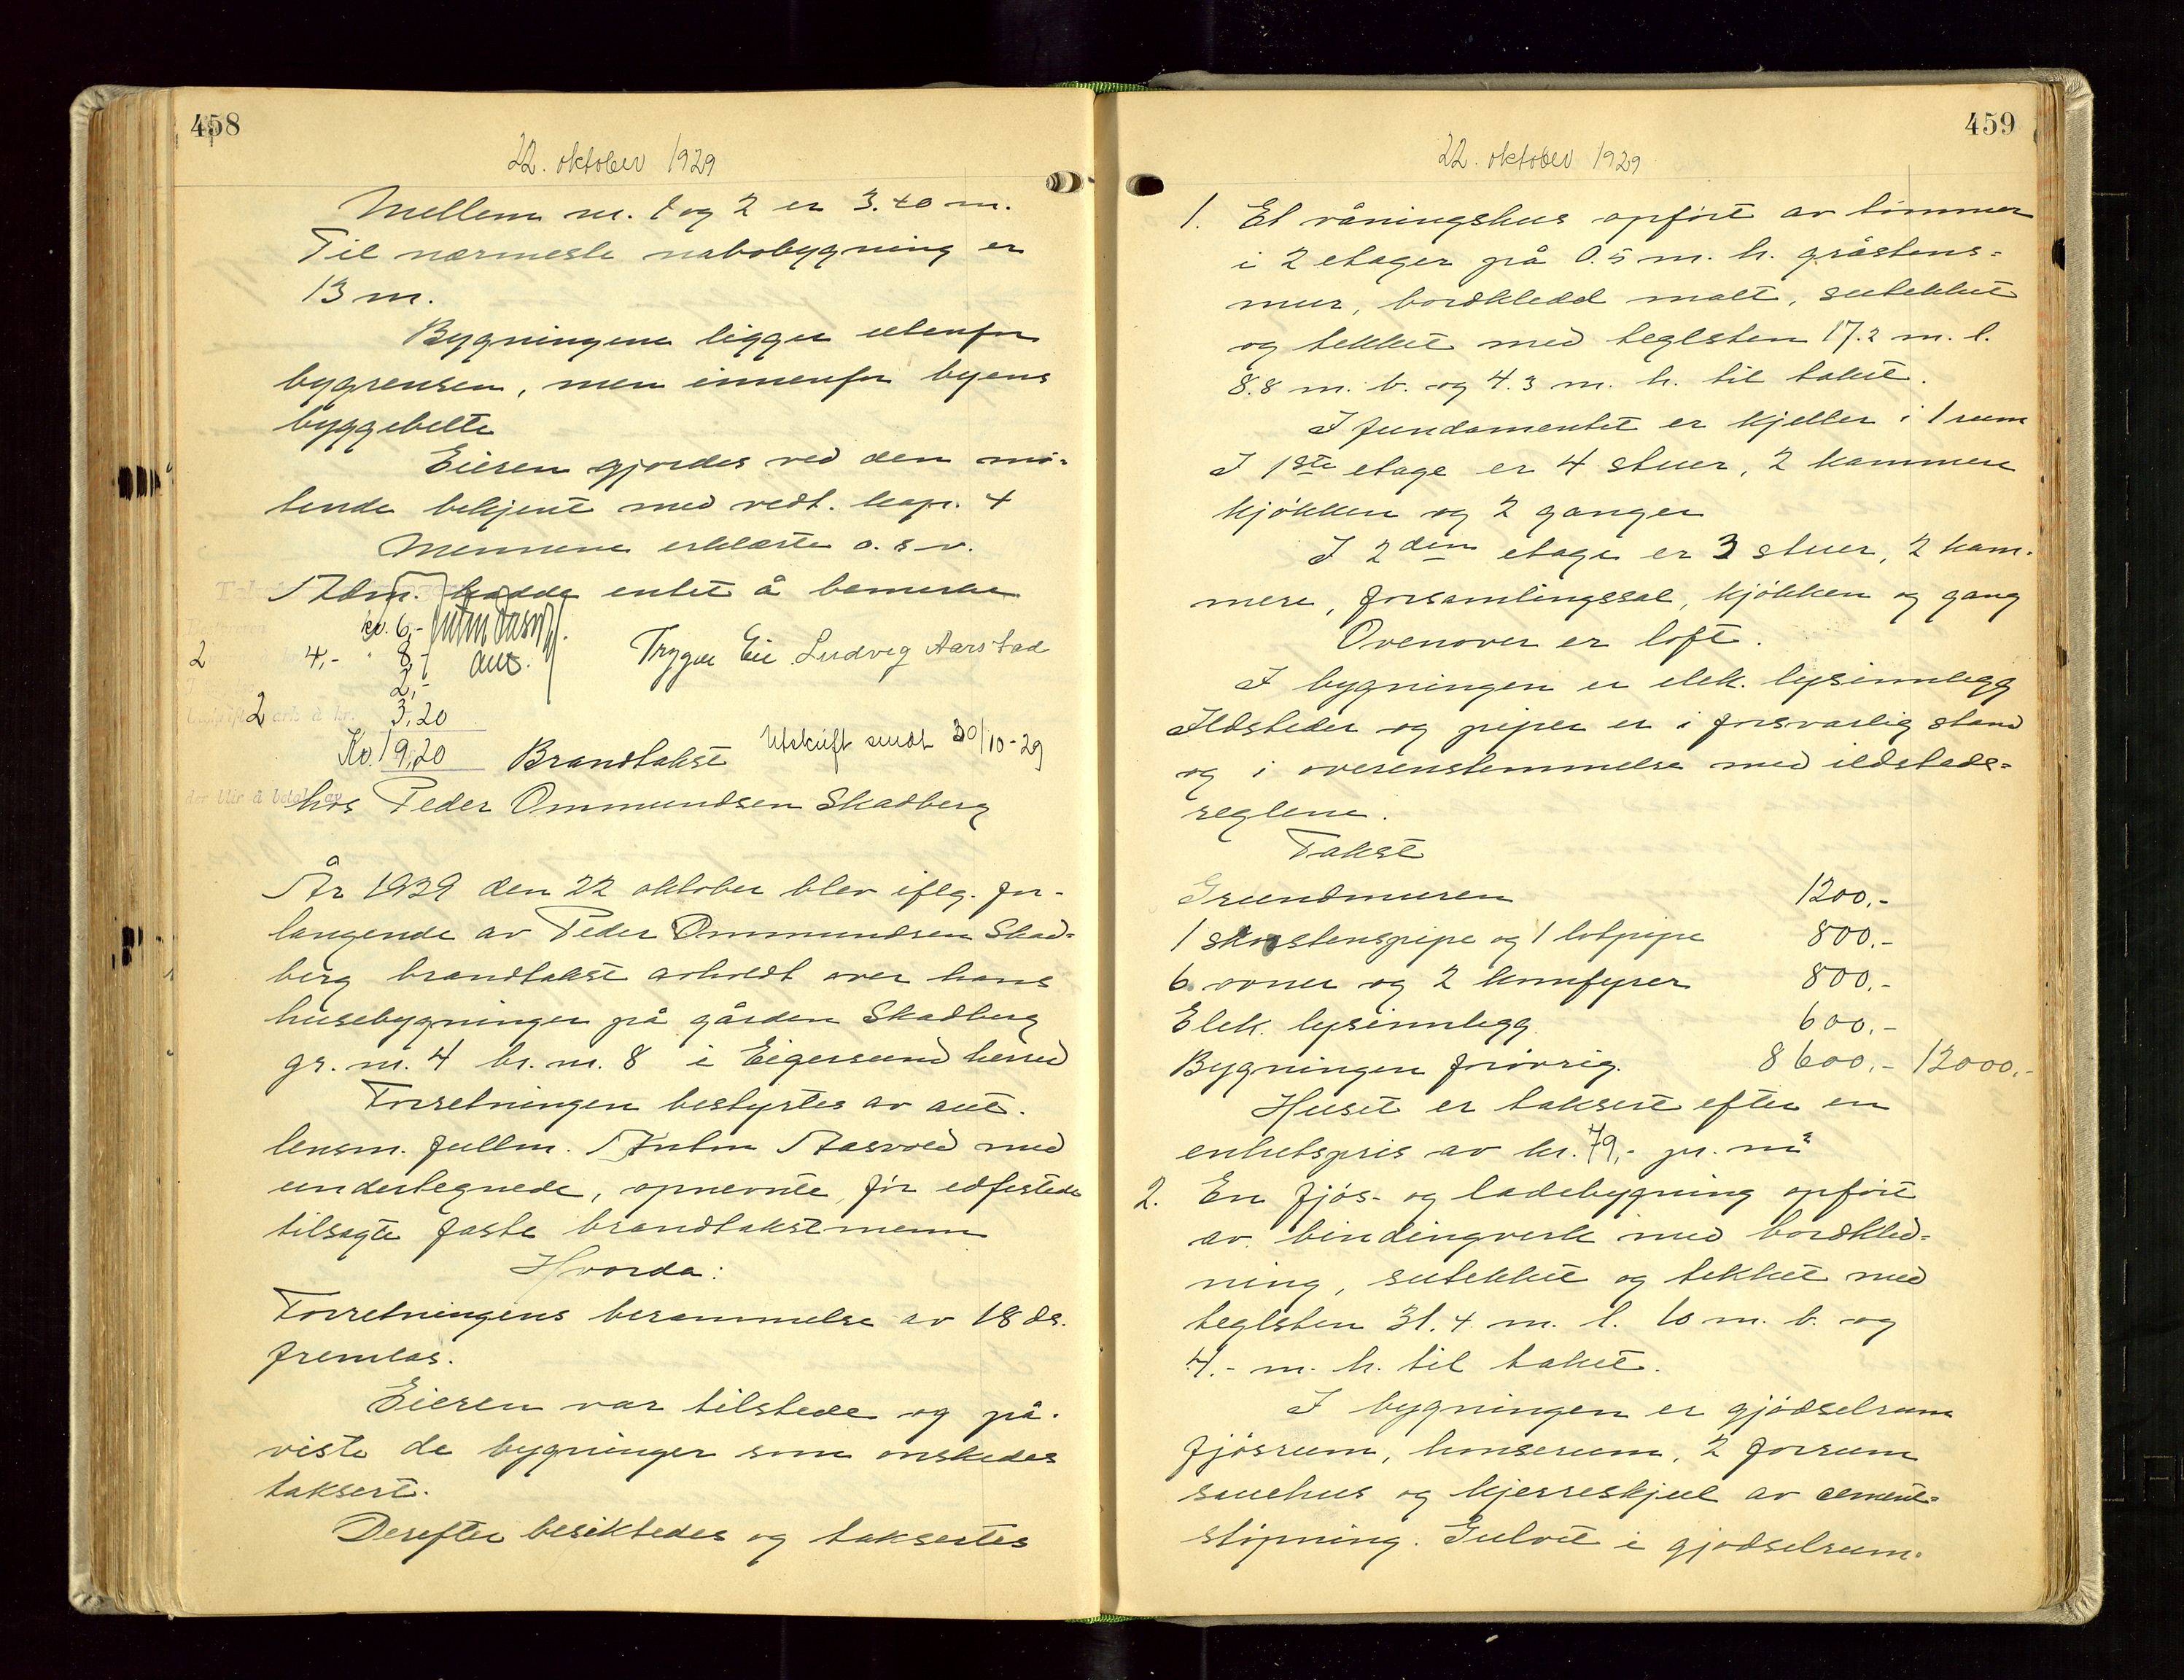 458
22. oktober 1929
Mellem nr. 1 og 2 er 3.40 m.
Til nærmeste nabobygning er
13 m.
Bygningene ligger utenfor
bygrensen, men innenfor byens
byggebelte
Eieren gjordes ved den mø-
tende bekjent med vedt. kap. 4
Mennene erklærte o. s. v.
Adm. hadde entet å bemerke
kr. 6,-
2 4,- " 8,- aut. Trygve Eie Ludvig Aarstad
2,-
2 ark à kr. 3,20
Kr. 19,20 Brandtakst Utskrift sendt 30/10-29
der blir å betale av
hos Peder Ommundsen Skadberg
År 1929 den 22 oktober blev iflg. for-
langende av Peder Ommundsen Skad-
berg brandtakst avholdt over hans
husebygninger på gården Skadberg
gr. nr. 4 br. nr. 8 i Eigersund herred
Forretningen bestyrtes av aut.
lensm. fullm. Anton Aasvold med
undertegnede, opnevnte, før edfestede
tilsagte faste brandtakstmenn
Hvorda:
Forretningens berammelse av 18 ds.
fremlas.
Eieren var tilstede og på-
viste de bygninger som ønskedes
taksert.
Derefter besiktedes og taksertes
459
22. oktober 1929
1. Et våningshus opført av tømmer
i 2 etager på 0.5 m. h. gråstens-
mur, bordkledd malt, sutekket
og tekket med teglsten 17.2 m. l.
8.8 m. b. og 4.3 m. h. til taket.
I fundamentet er kjeller i 1 rum
I 1ste etage er 4 stuer, 2 kammere
kjøkken og 2 ganger
I 2den etage er 3 stuer, 2 kam-
mere, forsamlingssal, kjøkken og gang
Ovenover er loft.
I bygningen er elek. lysinnlegg
Ildsteder og piper er i forsvarlig stand
og i overenstemmelse med ildsteds-
reglene.
Takst
Grundmuren 1200.-
1 skorstenspipe og 1 lotpipe 800.-
6 ovner og 2 komfyrer 800.-
Elek. lysinnlegg 600.-
Bygningen forøvrig. 8600.- 12000.-
Huset er taksert efter en
enhetspris av kr. 79,- pr. m²
2. En fjøs- og ladebygning opført
av bindingverk med bordkled-
ning, sutekket og tekket med
teglsten 31.4 m. l. 10 m. b. og
4.- m. h. til taket.
I bygningen er gjødselrum
fjøsrum, hønserum, 2 forrum
sauehus og kjerreskjul av cement-
støpning. Gulvet i gjødselrum-